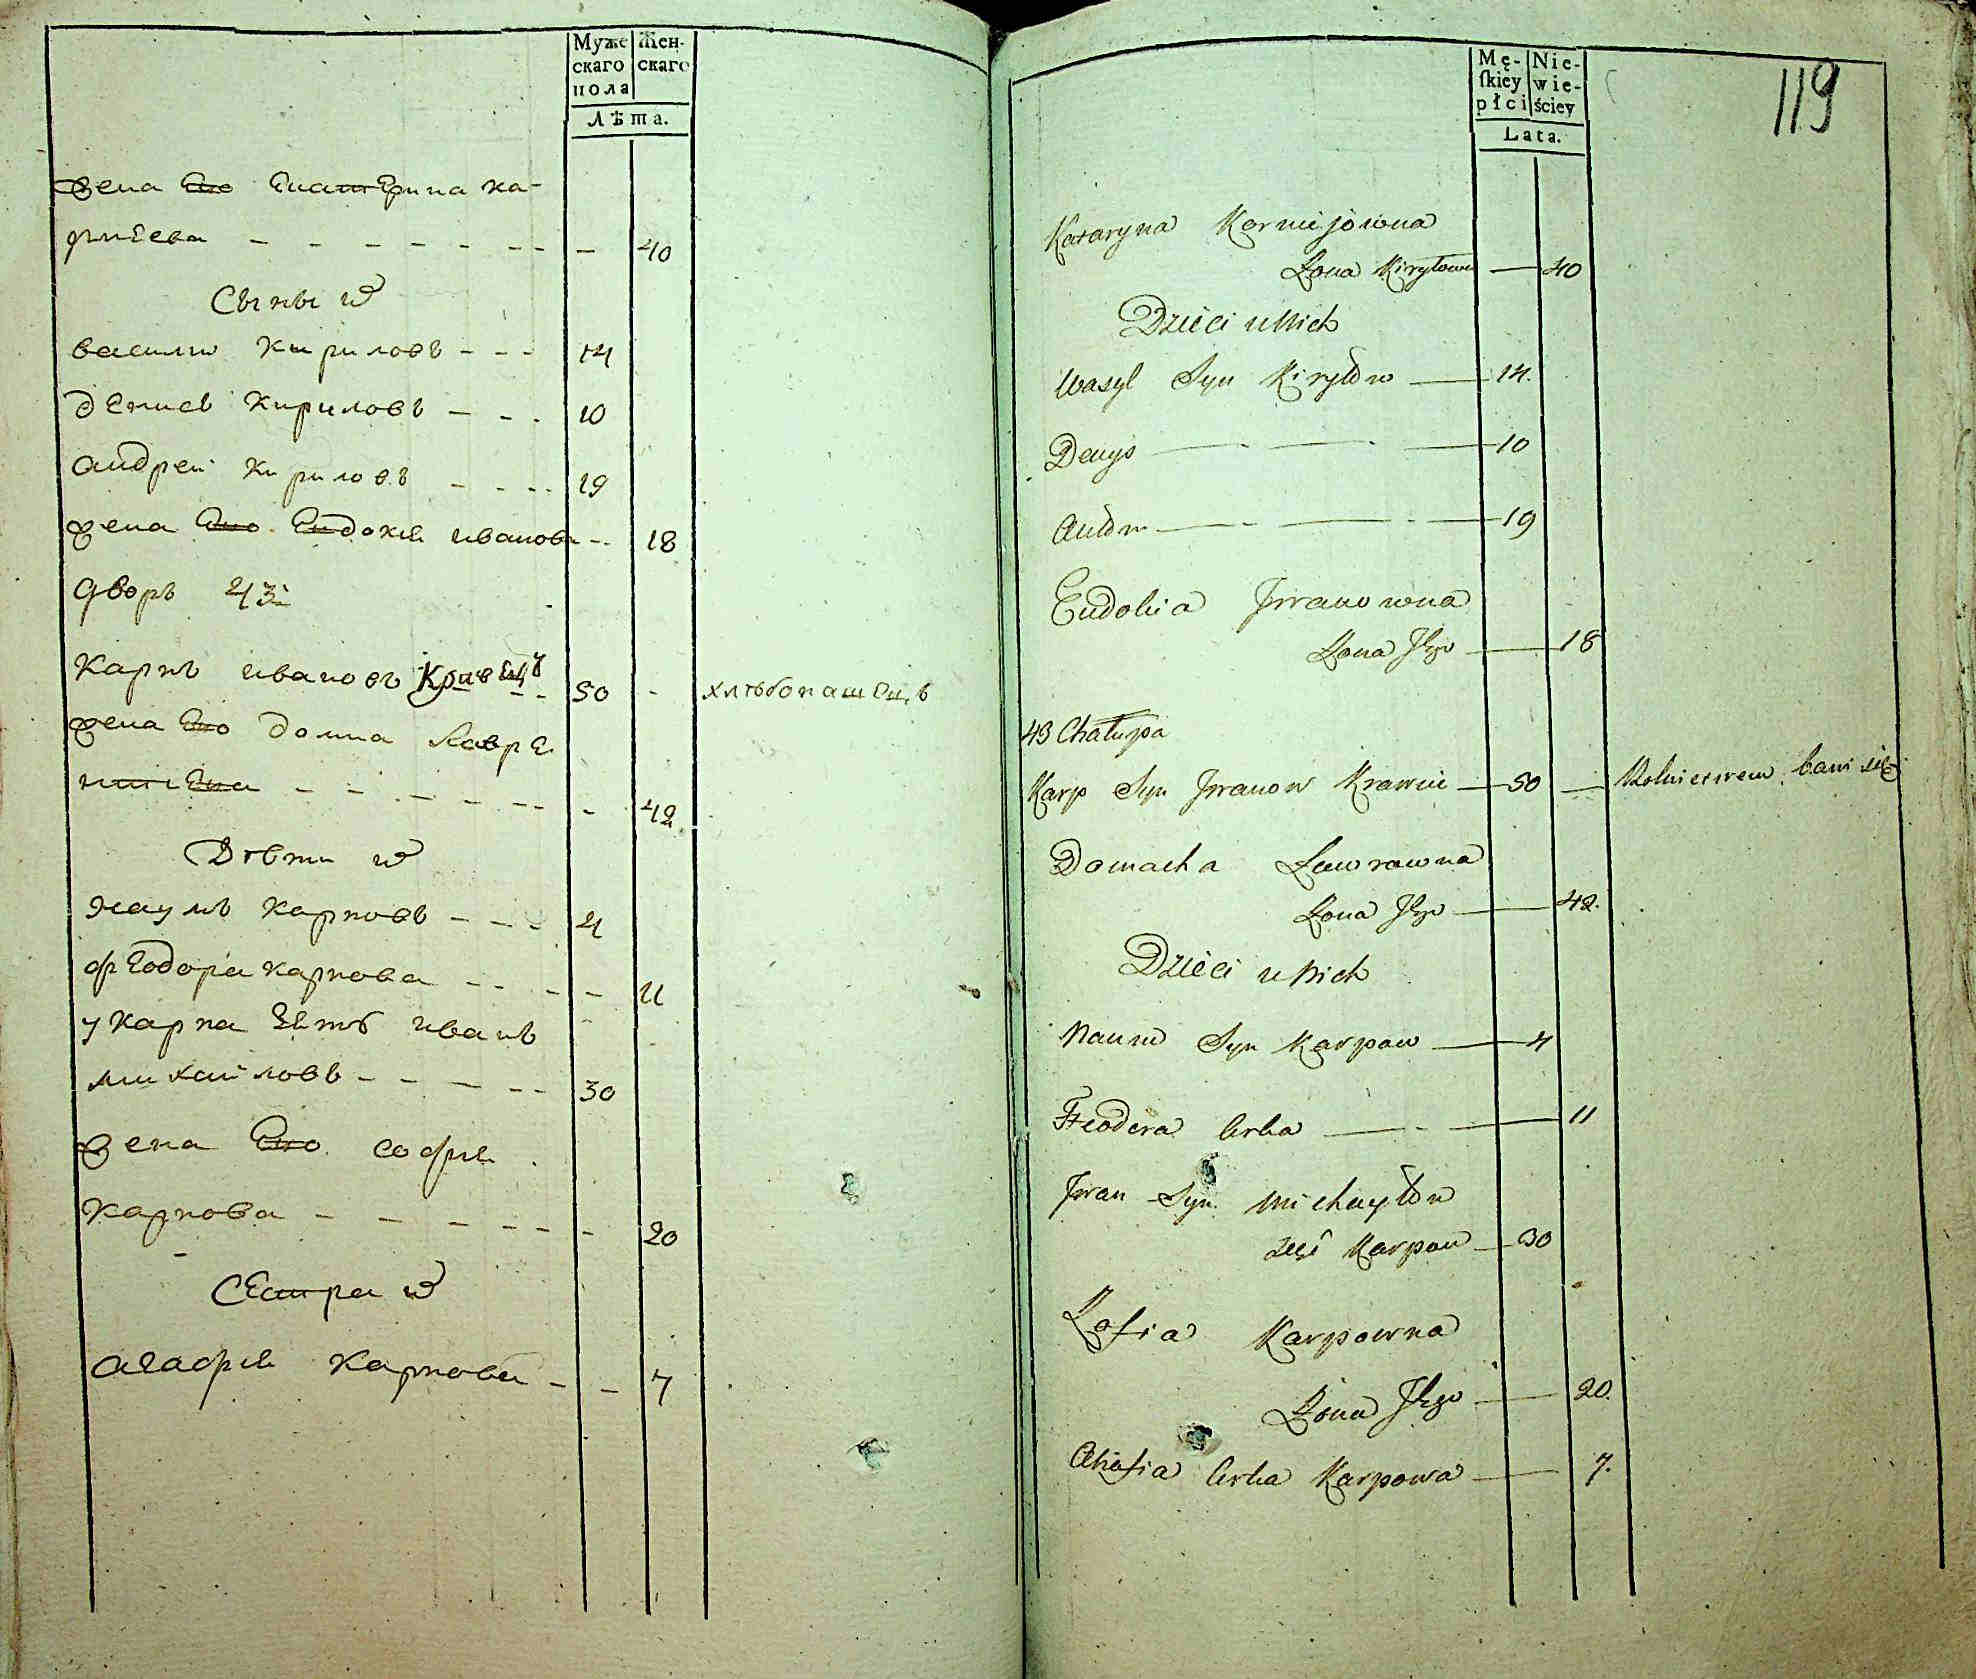 Муже
скаго
пола
Жен-
скаго
Лѣта.
жена Его Екатерина ка-
рнѣева - - - - - - - - 40
Сыны и҃х
василій кириловъ - - - 14
денисъ кириловъ - - - 10
андрей кириловъ - - - - 19
жена Его Евдокія иванова - - 18
дворъ 43й
Карпъ ивановъ - - 50 - хлѣбопашецъ
жена Его домна лавре
нтіева - - - - - - - - 42
Дѣти и҃х
наумъ карповъ - - - - 4
феодора карпова - - - - 11
у карпа зять иванъ
михайловъ - - - - - 30
жена Его софія
карпова - - - - - - - 20
сестра и҃х
агафія карпова - - 7
Mę-
skiey
płci
Nie-
wie-
ściey
Lata.
119
Kataryna Korniejowna
Żona Kiryłowa — 40
Dzieci u Nich
Wasyl Syn Kiryłów — 14.
Denys — - — - — 10
— - — - — 19
Eudokia Jwanowna
Żona Jego — 18
43 Chałupa
Karp Syn Jwanow Krawiec — 50 — Rolnictwem bawi się
Domacha Ławrowna
Żona Jego — 42.
Dzieci u Nich
Naum Syn Karpow — 4
Fteodora Corka — - — 11
Jwan Syn Michayłów
Zięć Karpow — 30
Zofia Karpowna
Żona Jego — 20.
Ahafia Corka Karpowa — 7.